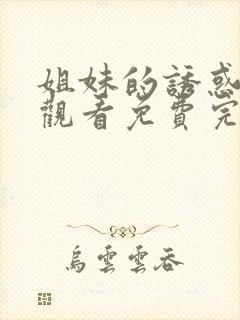 姐妹的誘惑
觀看免費完
烏雲雲吞